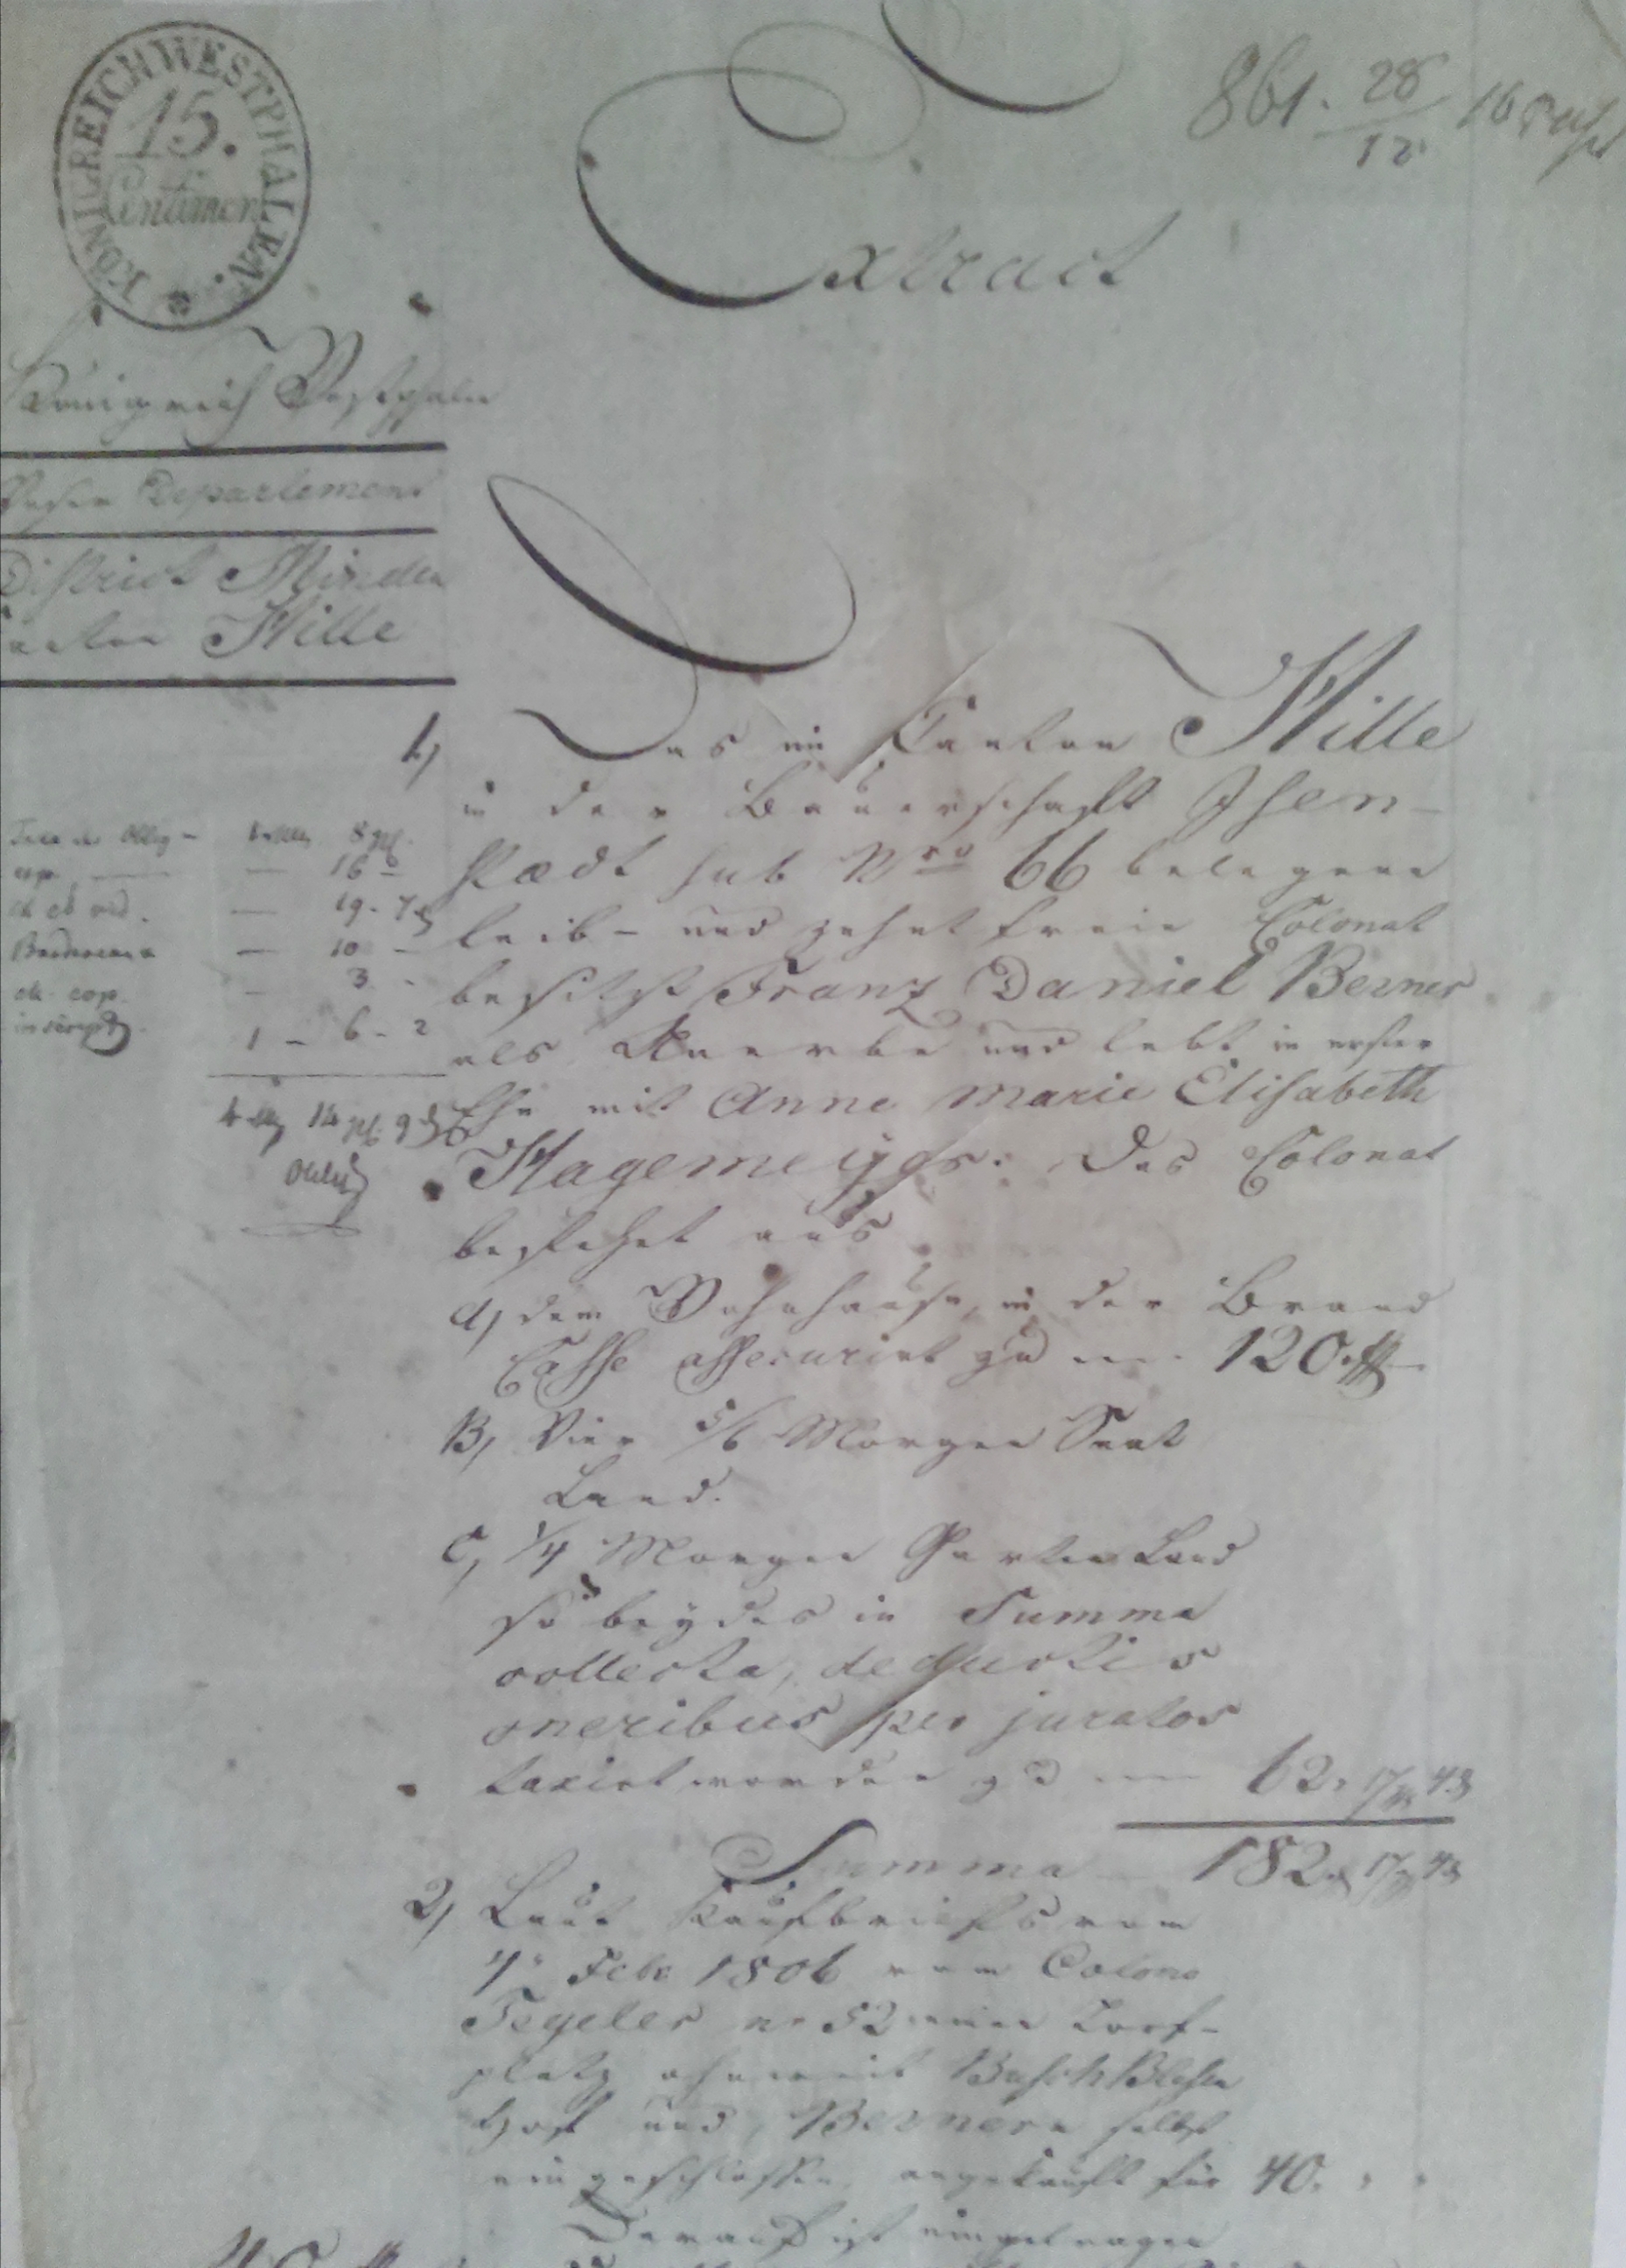 KÖNIGREICH WESTPHALEN.
15.
Centimen
861. 28/12
Extract
Königreich Westphalen
Weser Departement
District Minden
Canton Hille
1) Das im Canton Hille
in der Bauerschaft Isen-
staedt sub Nro 66 belegene
leib- und zehntfreie Colonat
besitzt Franz Daniel Berner
als Anerbe und lebt in erster
Ehe mit Anne Marie Elisabeth
Hagemeÿers: Das Colonat
bestehet aus
a) dem Wohnhause, in der Brand
Casse assecurirt zu 120.
B) Vier 5/6 Morgen Saat
Land.
C) 1/4 Morgen Garten Land
so beydes in Summa
collecta, deductis
oneribus per juratos
taxirt worden zu 62. 17 4
Summa 182 17 4
2) Laut Kaufbriefs vom
Febr 1806 vom Colono
Tegeler nr 52 einen Torf-
platz ohnweit
Hof und Berners selbst
eingeschlossen angekauft für 40.
Darauf ist eingetragen
8 gg.
16
19 - 7
10 -
3 -
1 - 6 - 2
4 14 9